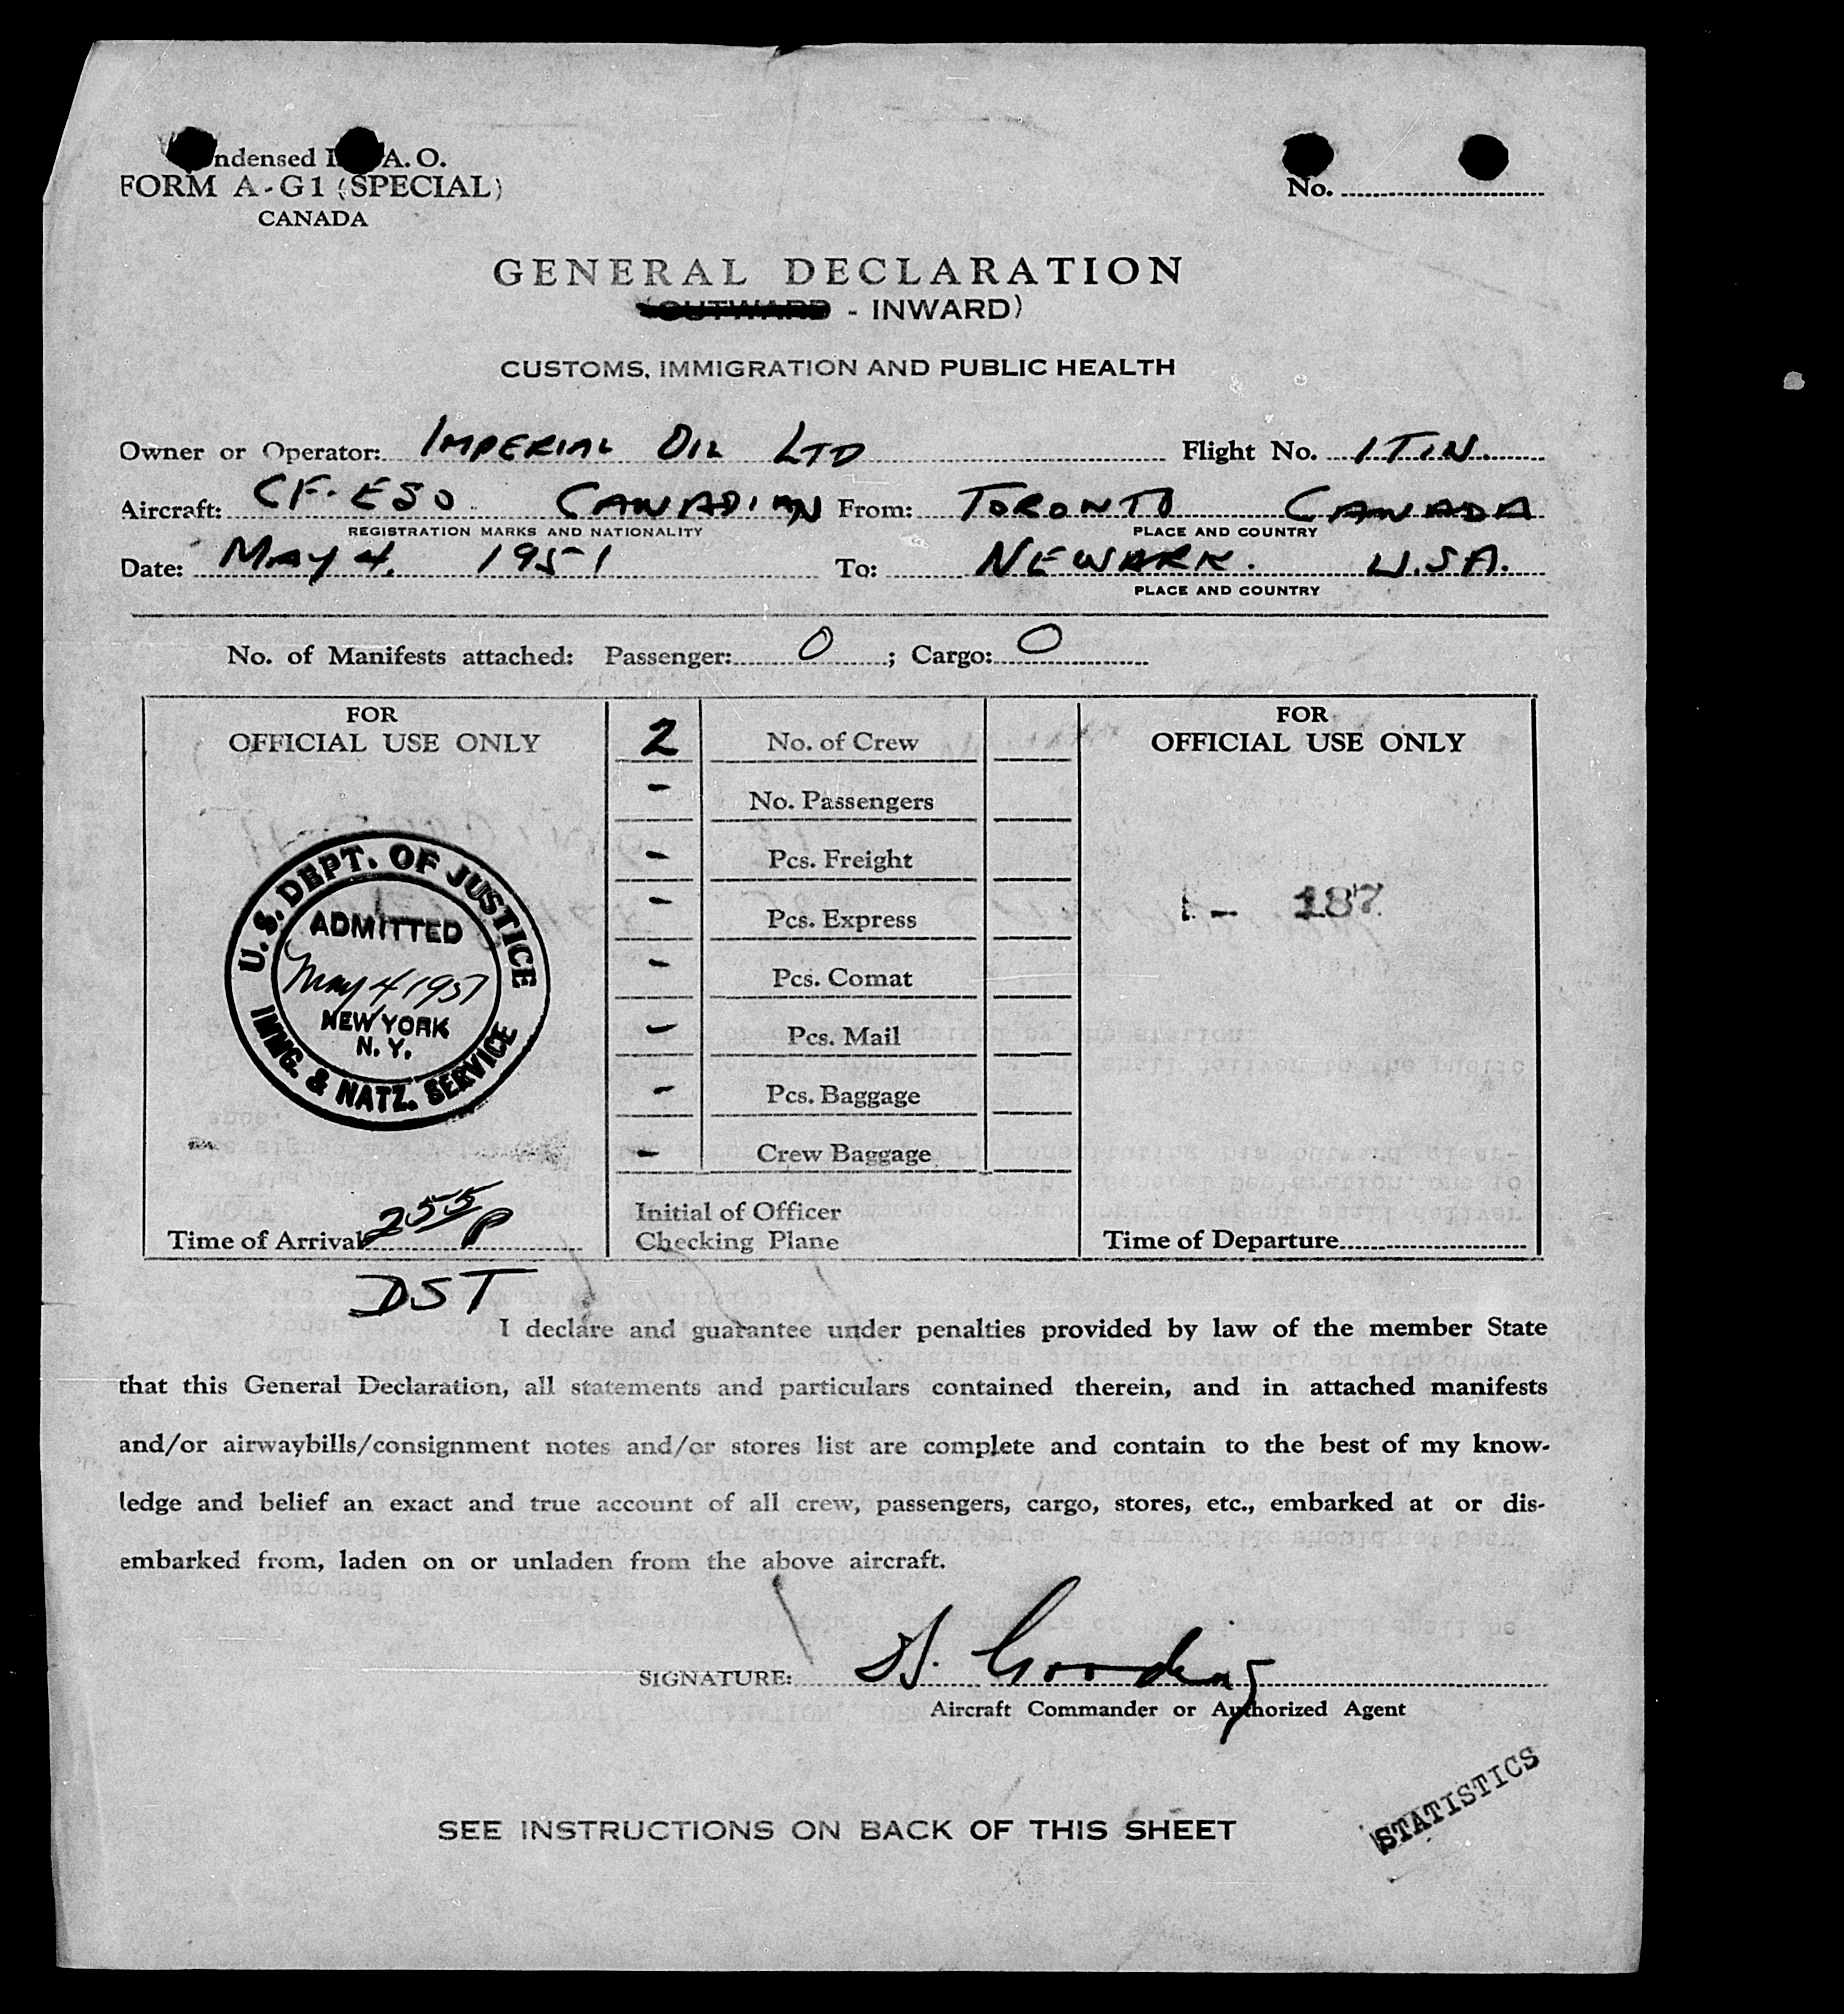 ndensed I A. O.
FORM A-G1 (SPECIAL)
CANADA
No.
GENERAL DECLARATION
(OUTWARD - INWARD)
CUSTOMS, IMMIGRATION AND PUBLIC HEALTH
Owner or Operator: IMPERIAL OIL LTD Flight No. ITIN.
Aircraft: CF-ESO CANADIAN From: TORONTO CANADA
REGISTRATION MARKS AND NATIONALITY PLACE AND COUNTRY
Date: MAY 4, 1951 To: NEWARK. U.S.A.
PLACE AND COUNTRY
No. of Manifests attached: Passenger: 0; Cargo: 0
FOR
OFFICIAL USE ONLY
U.S. DEPT. OF JUSTICE
ADMITTED
May 4 1951
NEW YORK
N. Y.
IMMG. & NATZ. SERVICE
Time of Arrival 255 P
DST
2 No. of Crew
- No. Passengers
- Pcs. Freight
- Pcs. Express
- Pcs. Comat
- Pcs. Mail
- Pcs. Baggage
- Crew Baggage
Initial of Officer
Checking Plane
FOR
OFFICIAL USE ONLY
- 187
Time of Departure
I declare and guarantee under penalties provided by law of the member State
that this General Declaration, all statements and particulars contained therein, and in attached manifests
and/or airwaybills/consignment notes and/or stores list are complete and contain to the best of my know-
ledge and belief an exact and true account of all crew, passengers, cargo, stores, etc., embarked at or dis-
embarked from, laden on or unladen from the above aircraft.
SIGNATURE:
Aircraft Commander or Authorized Agent
STATISTICS
SEE INSTRUCTIONS ON BACK OF THIS SHEET